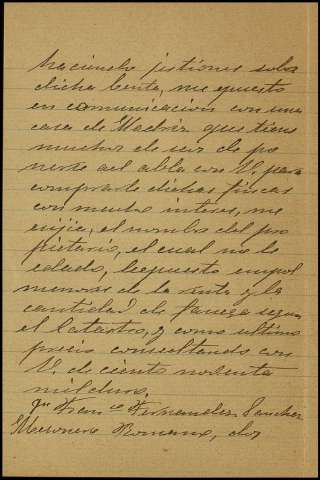 haciendo jistiones sobre
dicha benta, me epuesto
en comunicacion con una
casa de Madriz que tiene
muchos de seir de po
nerse al abla con V. para
comprarle dichas fincas
con mucho interes, me
esijie, el nombre del pro
pietario, el cual no le
edado, he puesto un pol
menores de la ruta y la
cantidad de fanega segun
el Catastro, y como ultimo
precio consultando con
V. de ciento nobenta
mil duros.
Fran.co Fernandez Sanchez
Mesonero Romano, dos